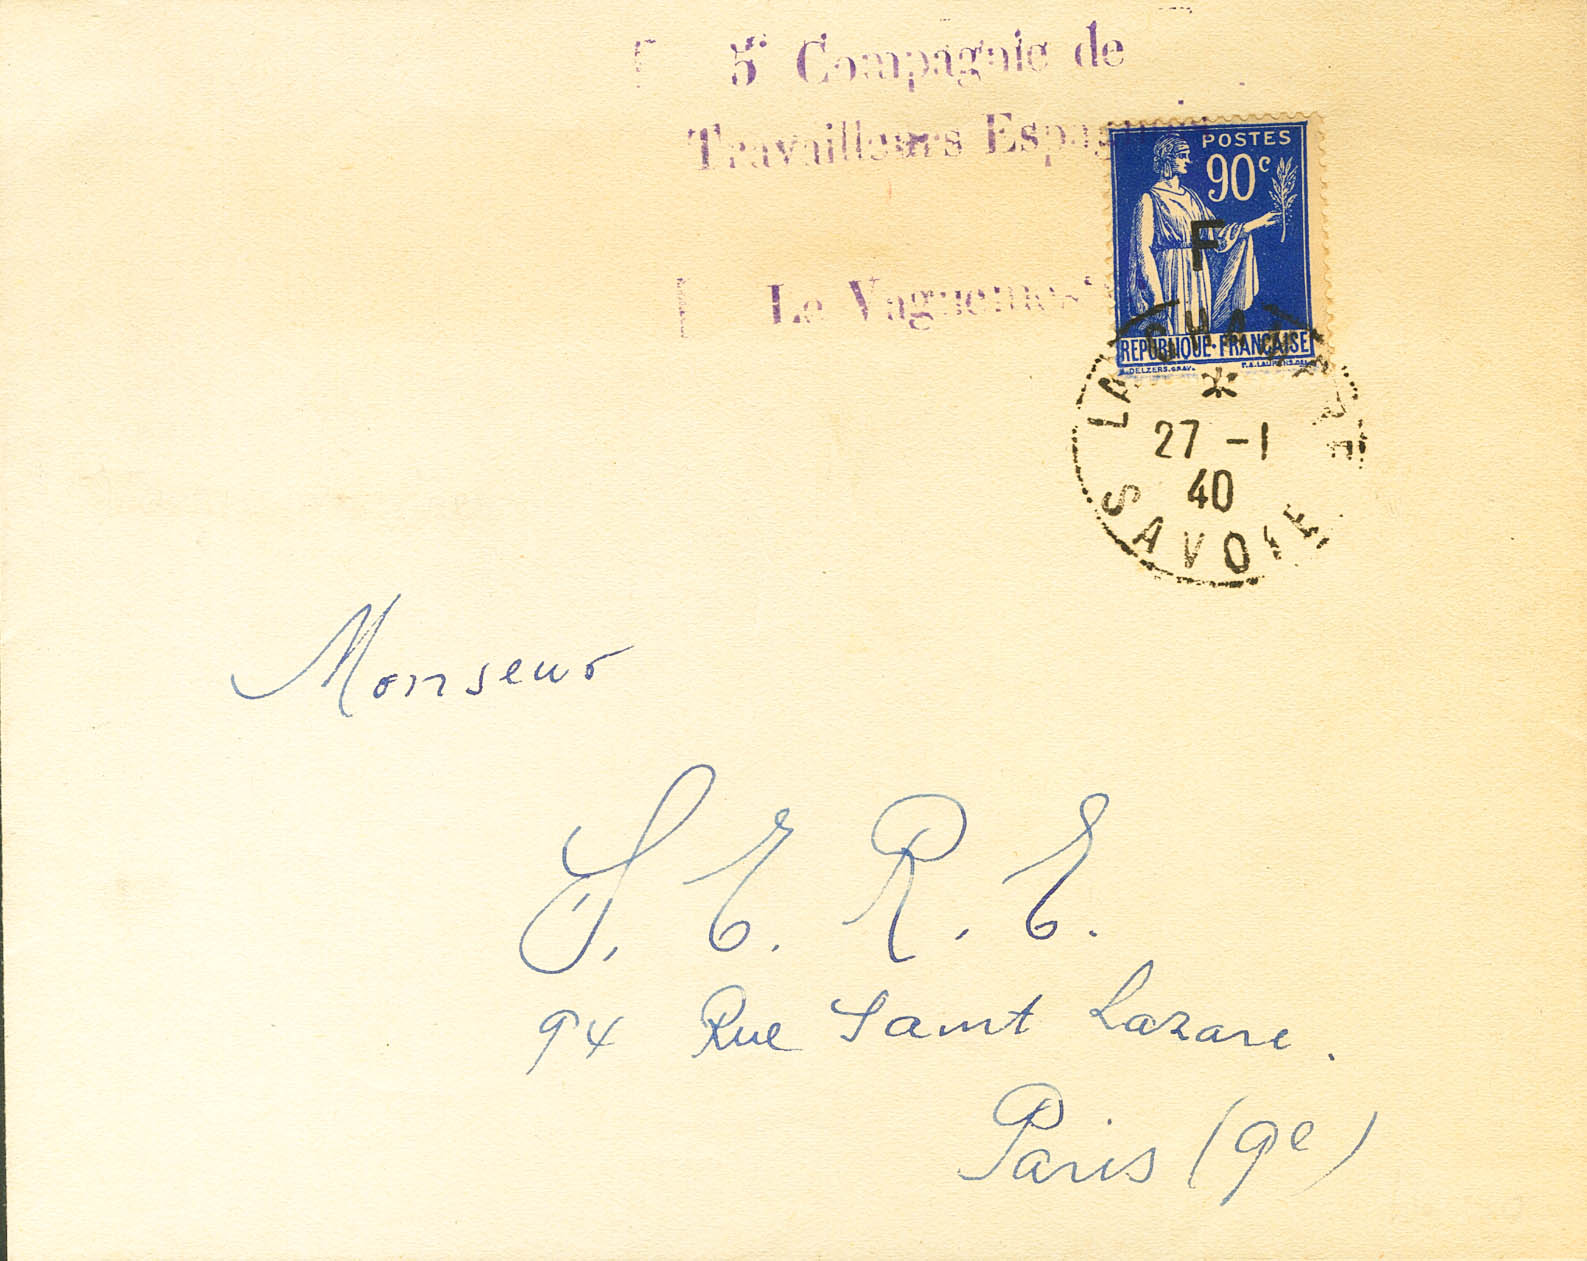 5e Compagnie de
Travailleurs Espagnols
Le Vaguemestre
POSTES
90c
F
REPUBLIQUE·FRANÇAISE
J.DELZERS.GRAV. P.A.LAURENS.DEL.
LA CHAMBRE
*
27 -1
40
SAVOIE
Monseur
S. E. R. E.
94 Rue Saint Lazare.
Paris (9e)